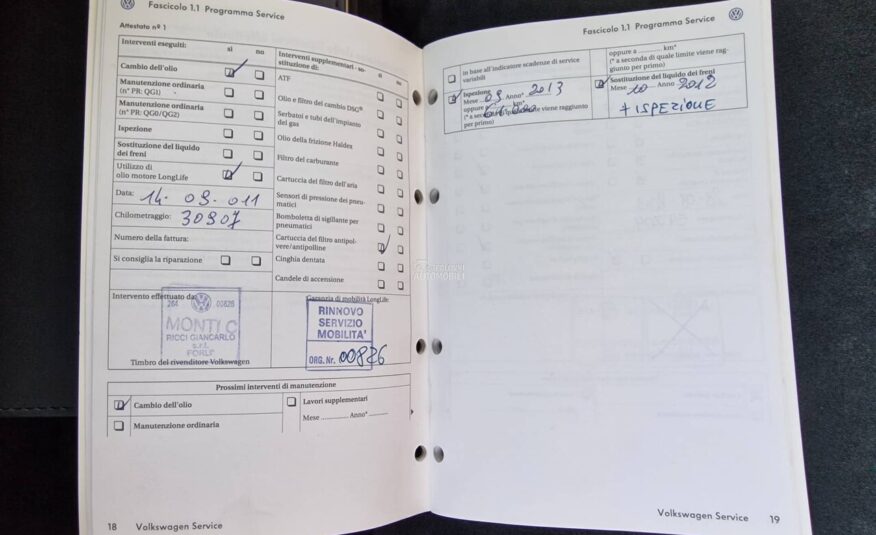 Fascicolo 1.1 Programma Service
Attestato nº 1
Interventi eseguiti:
sì
no
Cambio dell'olio
Manutenzione ordinaria
(nº PR: QG1)
Manutenzione ordinaria
(nº PR: QG0/QG2)
Ispezione
Sostituzione del liquido
dei freni
Utilizzo di
olio motore LongLife
Data: 14-09-011
Chilometraggio: 30907
Numero della fattura:
Si consiglia la riparazione
Interventi supplementari - so-
stituzione di:
sì
no
ATF
Olio e filtro del cambio DSG®
Serbatoi e tubi dell'impianto
del gas
Olio della frizione Haldex
Filtro del carburante
Cartuccia del filtro dell'aria
Sensori di pressione dei pneu-
matici
Bomboletta di sigillante per
pneumatici
Cartuccia del filtro antipol-
vere/antipolline
Cinghia dentata
Candele di accensione
Intervento effettuato da:
264 00826
MONTI C
RICCI GIANCARLO
s.r.l.
FORLI'
Timbro del rivenditore Volkswagen
Garanzia di mobilità LongLife
RINNOVO
SERVIZIO
MOBILITA'
ORG. Nr. 00826
Prossimi interventi di manutenzione
Cambio dell'olio
Manutenzione ordinaria
Lavori supplementari
Mese .............. Anno* ..............
18 Volkswagen Service
Fascicolo 1.1 Programma Service
in base all'indicatore scadenze di service
variabili
Ispezione
Mese 09 Anno* 2013
oppure km*
(* a seconda di quale limite viene raggiunto
per primo)
oppure a .............. km*
(* a seconda di quale limite viene rag-
giunto per primo)
Sostituzione del liquido dei freni
Mese 10 Anno 2012
+ ISPEZIONE
AUTOMOBILI
Volkswagen Service 19